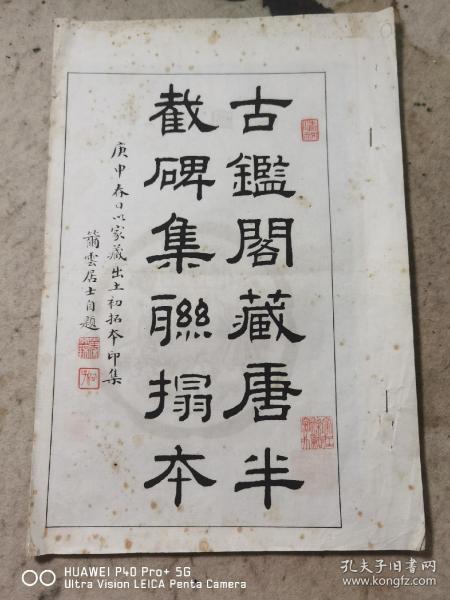 古鑑閣藏唐半
截碑集聯搨本
庚申春日以家藏出土初拓本印集
簫雲居士自題
HUAWEI P40 Pro+ 5G
Ultra Vision LEICA Penta Camera
孔夫子旧书网